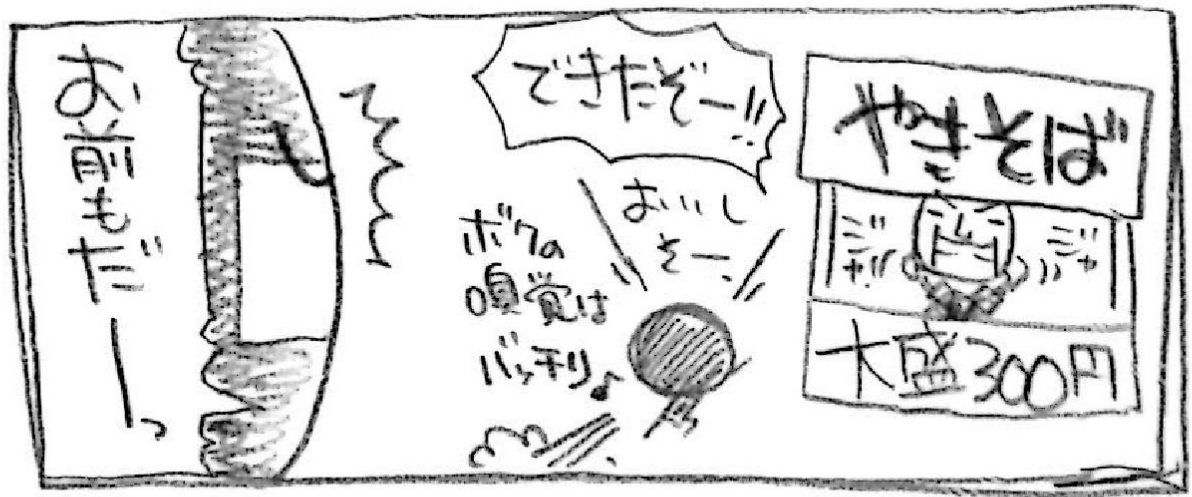 やきそば
ジャ
ジャ
大盛300円
できたぞー!!
おいし
そー
ボクの
嗅覚は
バッチリ♪
お前もだーっ